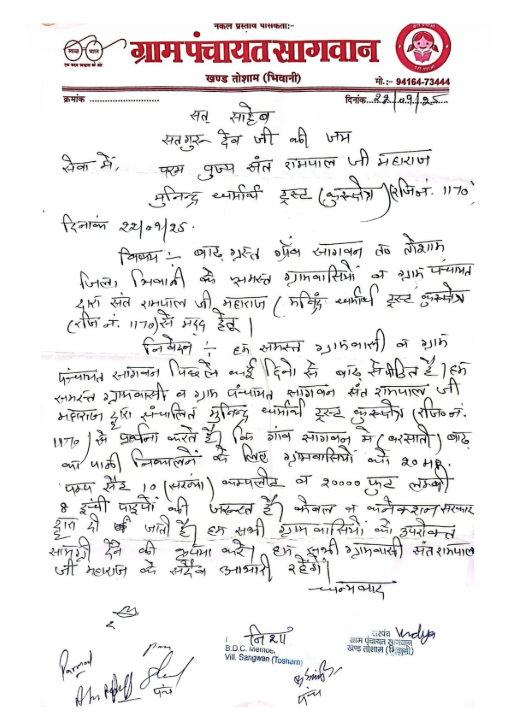 नकल प्रस्ताव पासकता:-
ग्राम पंचायत सागवान
खण्ड तोशाम (भिवानी)
मो.:- 94164-73444
क्रमांक
दिनांक 22/09/25
सत् साहेब
सतगुरु देव जी की जय
सेवा में, परम पुज्य संत रामपाल जी महाराज
मुनिन्द्र धर्मार्थ ट्रस्ट (कुरुक्षेत्र) (रजि नं. 1170)
दिनांक 22/09/25.
विषय :- बाढ़ ग्रस्त गाँव सागवन तह तोशाम
जिला भिवानी के समस्त ग्रामवासियों व ग्राम पंचायत
द्वारा संत रामपाल जी महाराज (मुनिंद्र धर्मार्थ ट्रस्ट कुरुक्षेत्र
(रजि नं. 1170) से मदद हेतू।
निवेदन :- हम समस्त ग्रामवासी व ग्राम
पंन्चायत सागवान पिछले कई दिनो से बाढ़ से पीडित है। हम
समस्त ग्रामवासी व ग्राम पंचायत सागवन संत रामपाल जी
महाराज द्वारा संचालित मुनिन्द्र धर्मार्थ ट्रस्ट कुरुक्षेत्र (रजि० नं.
1170) से प्रार्थना करते है। कि गांव सागवन मे (बरसाती) बाढ़
का पानी निकालने के लिए ग्रामवासियों को 20 HP.
पम्प सैट 10 (सरव्या) कम्पलीट व 20000 फुट लम्बी
8 इन्ची पाइपों की जरूरत है। केबल व कनेक्शन सरकार
द्वारा दी जाती है। हम सभी ग्रामवासियो को उपरोक्त
सामग्री देने की कृपया करे। हम सभी ग्रामवासी संत रामपाल
जी महाराज के सदैव आभारी रहेंगे।
धन्यवाद
निशा
B.D.C. Member
Vill. Sangwan (Tosham)
सरपंच Vidya
ग्राम पंचायत सागवान
खण्ड तोशाम (भिवानी)
पंच
पंच